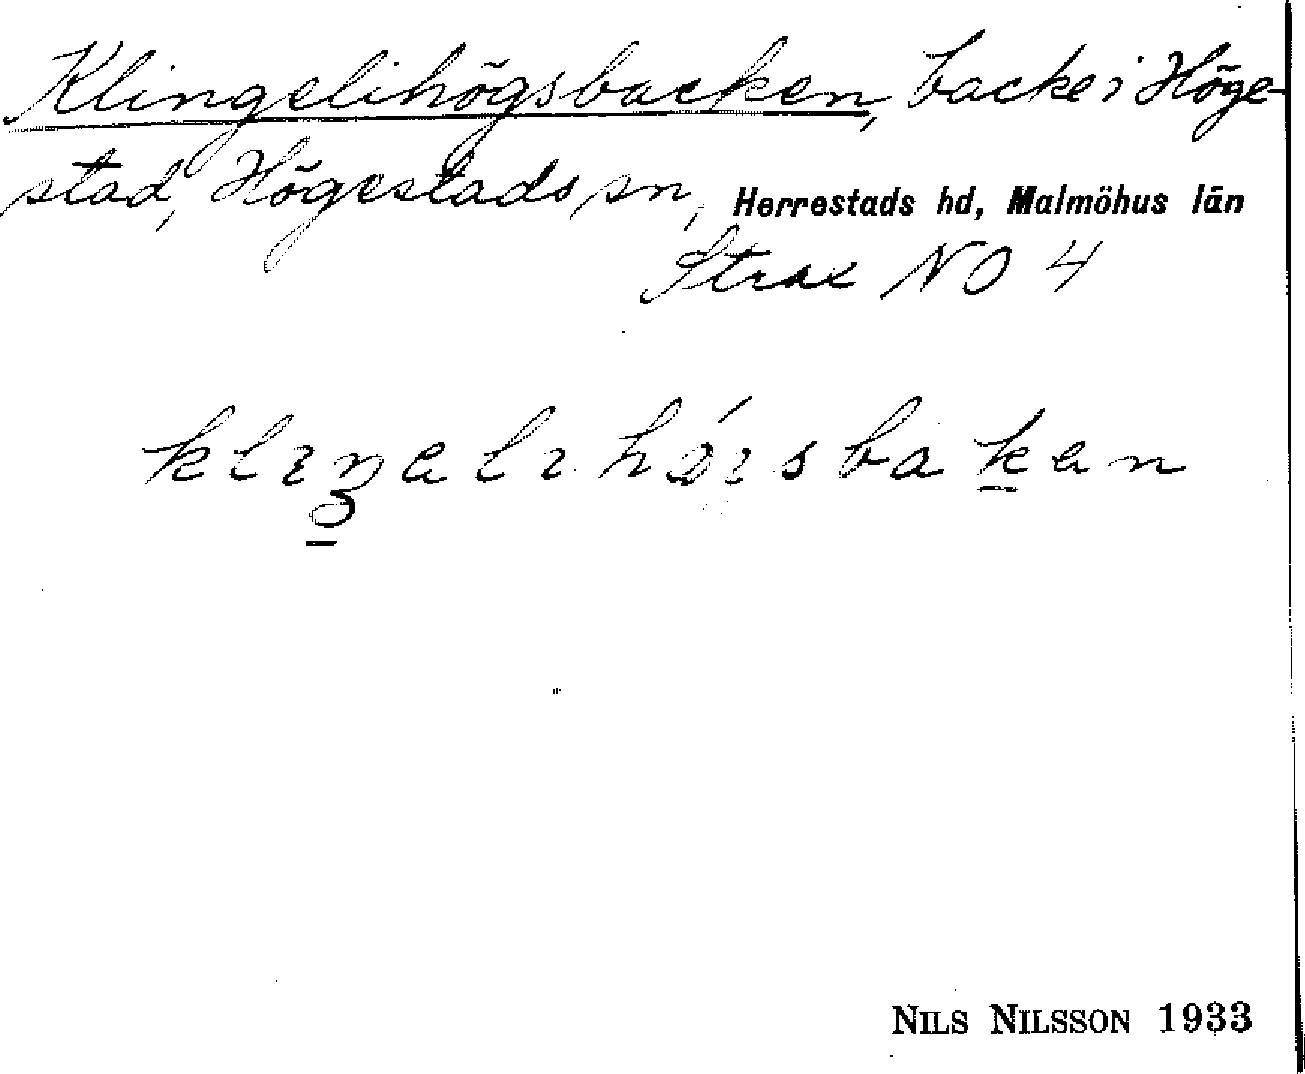 Klingelihögsbacken, backe i Höge-
stad, Högestads sn, Herrestads hd, Malmöhus län
Strax NO 4
NILS NILSSON 1933